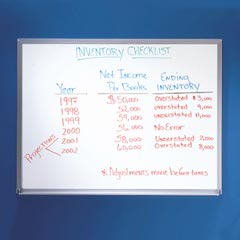 INVENTORY CHECKLIST
Year Net Income Per Books ENDING INVENTORY
1997 $50,000 Overstated $3,000
1998 52,000 overstated 9,000
1999 54,000 understated 11,000
2000 56,000 No Error
2001 58,000 Understated 2,000
2002 60,000 Overstated 8,000
Projections
* Adjustments made before taxes